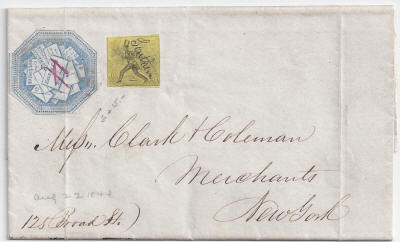 Messrs. Clark & Coleman
Merchants
New York
aug 22 1844
128 Broad St.